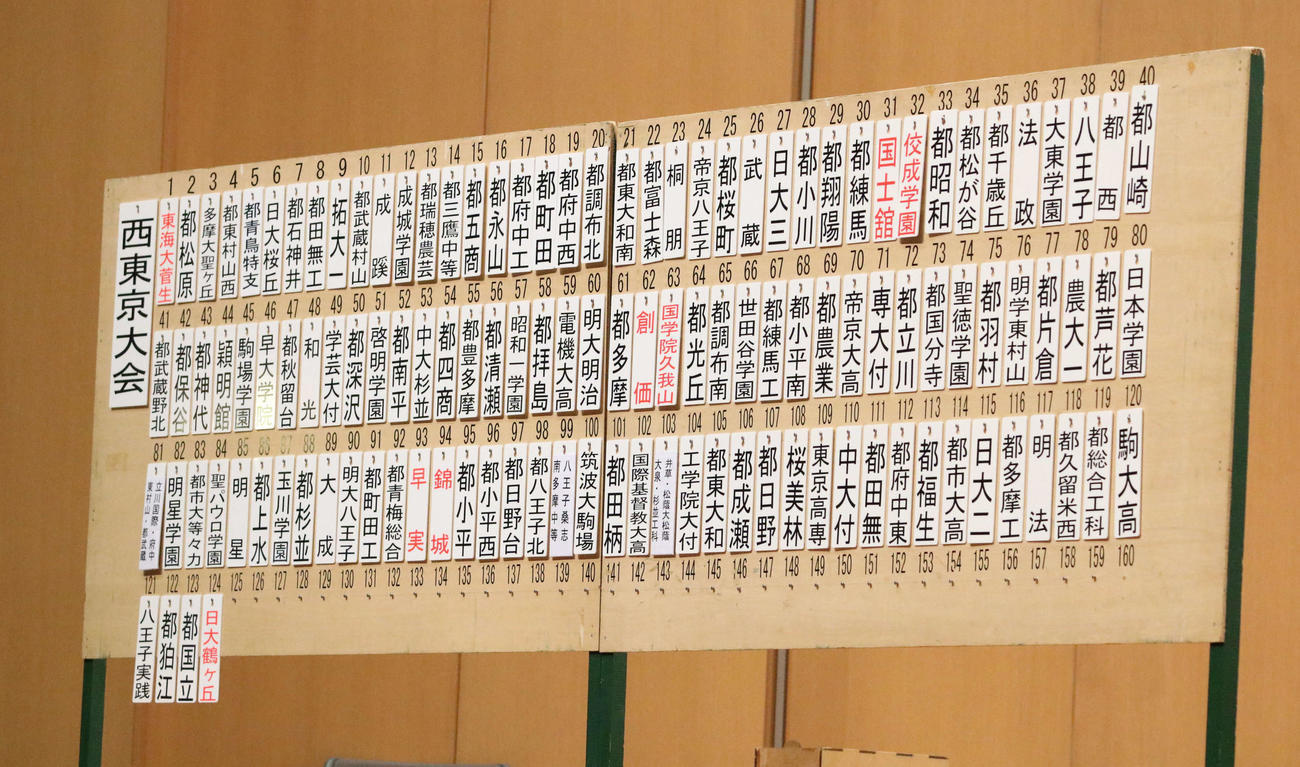 西東京大会
1 2 3 4 5 6 7 8 9 10 11 12 13 14 15 16 17 18 19 20 21 22 23 24 25 26 27 28 29 30 31 32 33 34 35 36 37 38 39 40
東海大菅生
都松原
多摩大聖ヶ丘
都東村山西
都青鳥特支
日大桜丘
都石神井
都田無工
拓大一
都武蔵村山
成蹊
成城学園
都瑞穂農芸
都三鷹中等
都五商
都永山
都府中工
都町田
都府中西
都調布北
都東大和南
都富士森
桐朋
帝京八王子
都桜町
武蔵
日大三
都小川
都翔陽
都練馬
国士舘
佼成学園
都昭和
都松が谷
都千歳丘
法政
大東学園
八王子
都西
都山崎
41 42 43 44 45 46 47 48 49 50 51 52 53 54 55 56 57 58 59 60 61 62 63 64 65 66 67 68 69 70 71 72 73 74 75 76 77 78 79 80
都武蔵野北
都保谷
都神代
穎明館
駒場学園
早大学院
都秋留台
和光
学芸大付
都深沢
啓明学園
都南平
中大杉並
都四商
都豊多摩
都清瀬
昭和一学園
都拝島
電機大高
明大明治
都多摩
創価
国学院久我山
都光丘
都調布南
世田谷学園
都練馬工
都小平南
都農業
帝京大高
専大付
都立川
都国分寺
聖徳学園
都羽村
明学東山
都片倉
農大一
都芦花
日本学園
81 82 83 84 85 86 87 88 89 90 91 92 93 94 95 96 97 98 99 100 101 102 103 104 105 106 107 108 109 110 111 112 113 114 115 116 117 118 119 120
立川国際・府中
東村山・都武蔵
明星学園
都市大等々力
聖パウロ学園
明星
都上水
玉川学園
都杉並
大成
明大八王子
都町田工
都青梅総合
早実
錦城
都小平
都小平西
都日野台
都八王子北
八王子桑志
南多摩中等
筑波大駒場
都田柄
国際基督教大高
井草・松蔭大松蔭
大泉・杉並工科
工学院大付
都東大和
都成瀬
都日野
桜美林
東京高専
中大付
都田無
都府中東
都福生
都市大高
日大二
都多摩工
明法
都久留米西
都総合工科
駒大高
121 122 123 124 125 126 127 128 129 130 131 132 133 134 135 136 137 138 139 140 141 142 143 144 145 146 147 148 149 150 151 152 153 154 155 156 157 158 159 160
八王子実践
都狛江
都国立
日大鶴ヶ丘